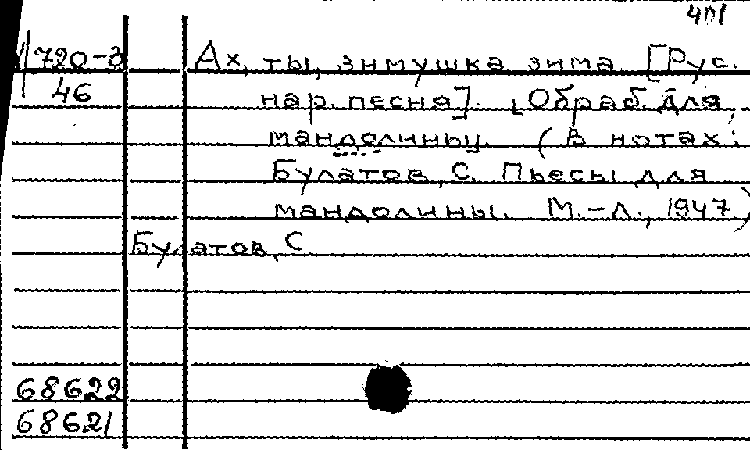 401
720-3 Ах, ты, зимушка зима. [Рус.
46 нар. песня]. [Обраб. для
мандолины. (В нотах:
Булатов, С. Пьесы для
мандолины. М.-Л., 1947)
Булатов, С
68622
68621